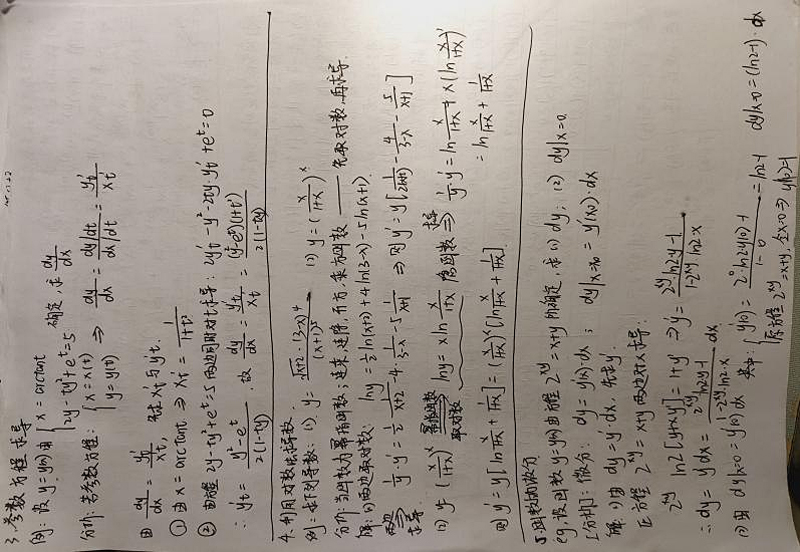 3.参数方程求导
例: 设 y=y(x) 由 { x = arctant
2y-ty²+e^t=5 确定, 求 dy/dx
分析: 若参数方程: { x = x(t)
y = y(t) ⇒ dy/dx = (dy/dt)/(dx/dt) = y't/x't
由 dy/dx = y't/x't, 先求 x't 与 y't.
① 由 x = arctant ⇒ x't = 1/(1+t²)
② 由方程 2y-ty²+e^t=5 两边同时对t求导: 2y't-y²-2ty y't+e^t=0
∴ y't = (y²-e^t)/(2(1-ty)). 故 dy/dx = y't/x't = (y²-e^t)(1+t²)/(2(1-ty))
4.利用对数法求导数
例: 求下列导数: (1) y = √(x+2)·(3-x)^4/(x+1)^5 (2) y = (x/(1+x))^x
分析: 当函数为幂指函数; 连乘, 连除, 开方, 乘方函数 —— 先取对数, 再求导.
解: (1) 两边取对数: lny = ½ln(x+2)+4ln(3-x)-5ln(x+1)
两边求导 ⇒ 1/y·y' = ½·1/(x+2)-4·1/(3-x)-5·1/(x+1) ⇒ 则 y' = y[1/(2(x+2))-4/(3-x)-5/(x+1)]
(2) y = (x/(1+x))^x 幂指函数 取对数 ⇒ lny = xln x/(1+x) 隐函数 求导 ⇒ 1/y·y' = ln x/(1+x) + x(ln x/(1+x))'
= ln x/(1+x) + 1/(1+x)
则 y' = y[ln x/(1+x) + 1/(1+x)] = (x/(1+x))^x[ln x/(1+x) + 1/(1+x)]
5.函数的微分
eg, 设函数 y=y(x) 由方程 2^xy = x+y 所确定, 求 (1) dy; (2) dy|x=0
[分析]: 微分: dy = y'(x)dx; dy|x=x0 = y'(x0)·dx
解: (1) 由 dy = y'dx, 先求 y'.
在方程 2^xy = x+y 两边对x求导:
2^xy ln2[y+xy'] = 1+y' ⇒ y' = (2^xy·ln2·y-1)/(1-2^xy ln2·x)
∴ dy = y'dx = (2^xy ln2·y-1)/(1-2^xy·ln2·x) dx
(2) 由 dy|x=0 = y'(0)dx 其中: { y'(0) = (2^0·ln2·y(0)-1)/(1-0) = ln2-1 dy|x=0 = (ln2-1)·dx
原方程 2^xy = x+y, 令x=0 ⇒ y(0)=1